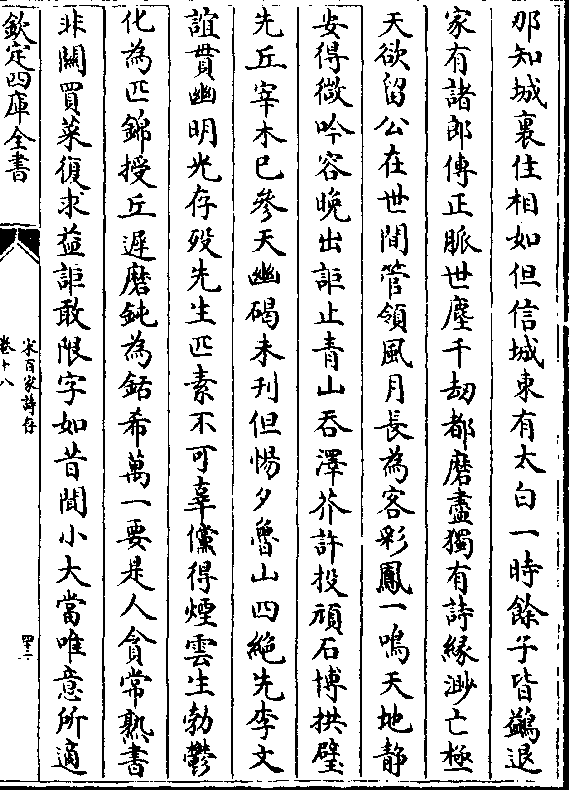 那知城裏住相如但信城東有太白一時餘子皆鷁退
家有諸郎傳正脈世塵千劫都磨盡獨有詩緣渺亡極
天欲留公在世間管領風月長為客彩鳳一鳴天地静
安得微吟容晚出詎止青山吞澤芥許投頑石博拱璧
先丘宰木已參天幽碣未刊但惕夕魯山四絶先李文
誼貫幽明光存殁先生匹素不可辜儻得煙雲生勃鬱
化為匹錦授丘遲磨鈍為銛希萬一要是人貪常熟書
非關買菜復求益詎敢限字如昔聞小大當唯意所適
欽定四庫全書
宋百家詩存
卷十八